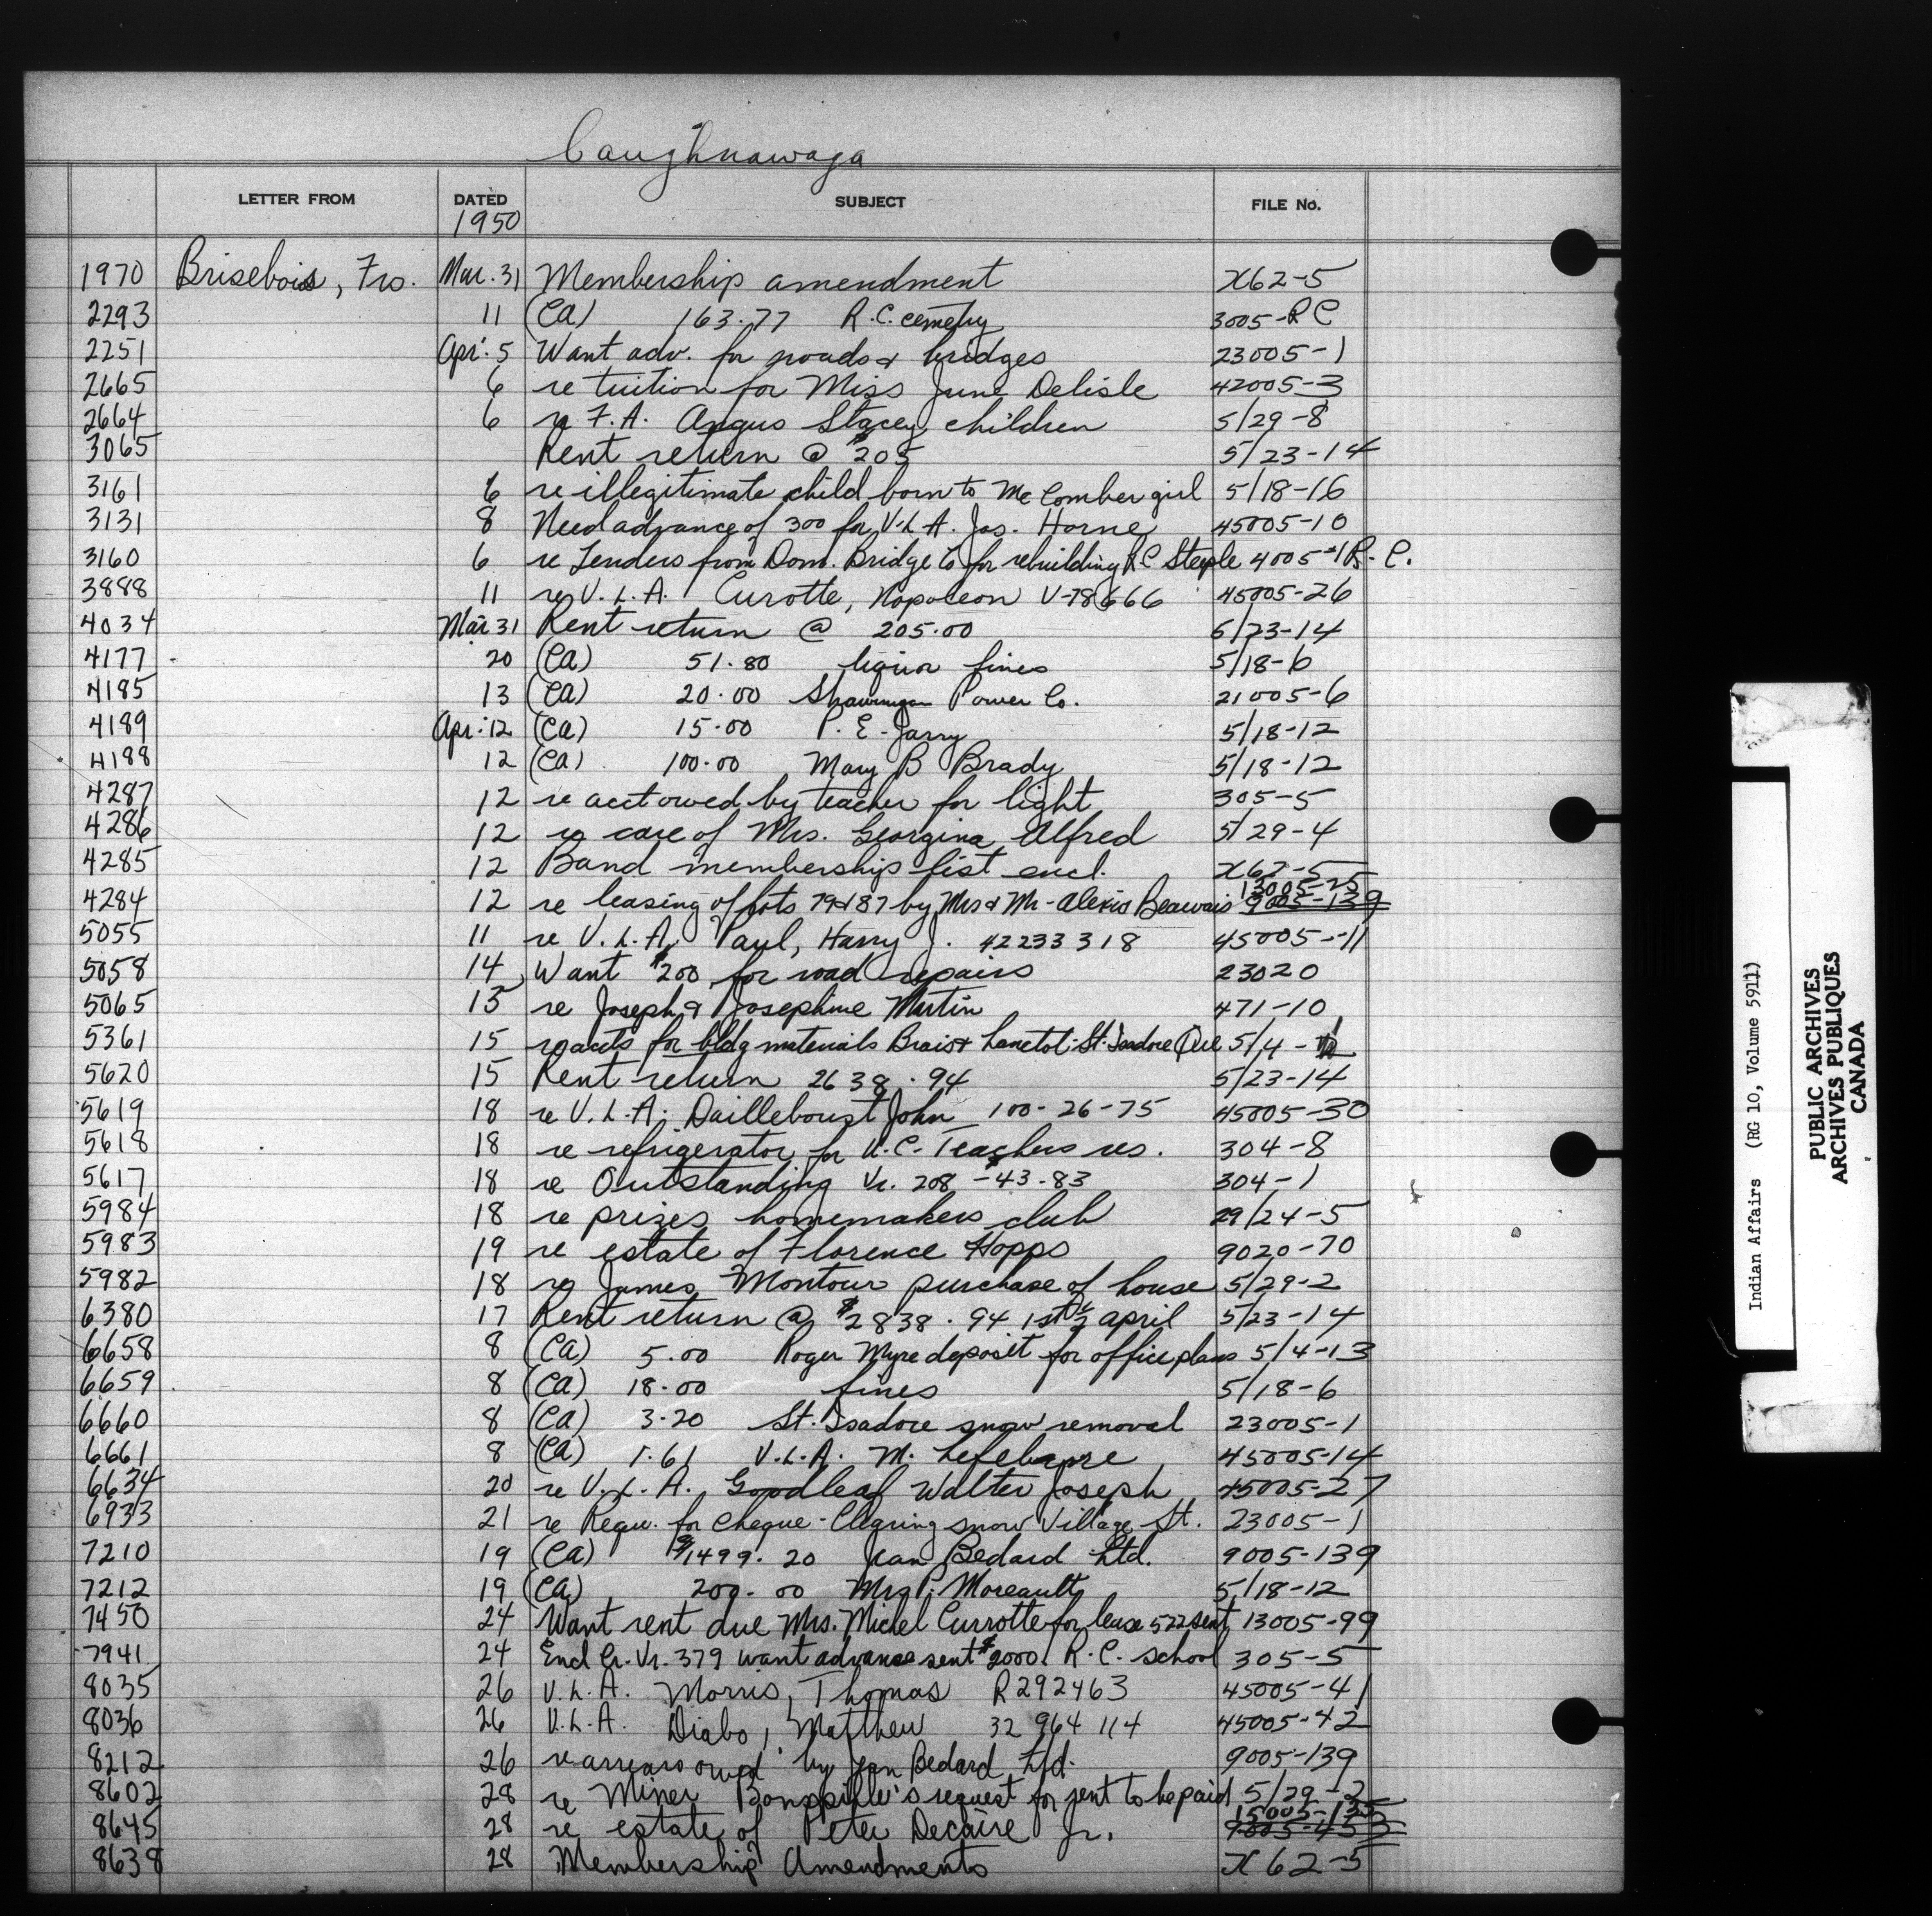 Caughnawaga
LETTER FROM DATED SUBJECT FILE No.
1950
1970 Brisebois, Fro. Mar. 31 Membership amendment X62-5
2293 11 (CA) 163.77 R.C. cemetry 3005-RC
2251 Apr. 5 Want adv. for roads & bridges 23005-1
2665 6 re tuition for Miss June Delisle 42005-3
2664 6 re F.A. Angus Stacey children 5/29-8
3065 Rent return @ $205 5/23-14
3161 6 re illegitimate child born to McComber girl 5/18-16
3131 8 Need advance of 300 for V.L.A. Jas. Horne 45005-10
3160 6 re Tenders from Dom. Bridge Co for rebuilding RC Steeple 4005-1 R.C.
3888 11 re V.L.A. Curotte, Napoleon V-78666 45005-26
4034 Mar 31 Rent return @ 205.00 5/23-14
4177 20 (CA) 51.80 liquor fines 5/18-6
4185 13 (CA) 20.00 Shawinigan Power Co. 21005-6
4189 Apr. 12 (CA) 15.00 P.E. Jarry 5/18-12
4188 12 (CA) 100.00 Mary B Brady 5/18-12
4287 12 re acct owed by teacher for light 305-5
4286 12 re care of Mrs. Georgina Alfred 5/29-4
4285 12 Band membership list encl. X62-5
4284 12 re leasing of lots 79 & 87 by Mrs & Mr. Alexis Beauvais 13005-25 9005-139
5055 11 re V.L.A. Paul, Harry J. 42233318 45005-11
5058 14 Want $200 for road repairs 23020
5065 15 re Joseph & Josephine Martin 471-10
5361 15 re accts for bldg materials Brais & Lanctot St. Isadore Que 5/4-
5620 15 Rent return 2638.94 5/23-14
5619 18 re V.L.A. Dailleboust John 100-26-75 45005-30
5618 18 re refrigerator for U.C. Teachers res. 304-8
5617 18 re Outstanding Vr. 208 - $43.83 304-1
5984 18 re prizes homemakers club 29/24-5
5983 19 re estate of Florence Hopps 9020-70
5982 18 re James Montour purchase of house 5/29-2
6380 17 Rent return @ $2838.94 1st ½ april 5/23-14
6658 8 (CA) 5.00 Roger Myre deposit for office plans 5/4-13
6659 8 (CA) 18.00 fines 5/18-6
6660 8 (CA) 3.20 St. Isadore snow removal 23005-1
6661 8 (CA) 1.61 V.L.A. M. Lefebvre 45005-14
6634 20 re V.L.A. Goodleaf Walter Joseph 45005-27
6933 21 re Requ. for cheque - Clearing snow Village St. 23005-1
7210 19 (CA) $1499.20 Jean Bedard Ltd. 9005-139
7212 19 (CA) 200.00 Mrs P. Moreault 5/18-12
7450 24 Want rent due Mrs. Michel Currotte for lease 522 sent 13005-99
7941 24 Encl Cr. Vr. 379 want advance sent $2000. R.C. school 305-5
8035 26 V.L.A. Morris, Thomas R292463 45005-41
8036 26 V.L.A. Diabo, Matthew 32 964 114 45005-42
8212 26 re arrears owed by Jean Bedard Ltd. 9005-139
8602 28 re Miner Bonspille's request for rent to be paid 5/29-2
8645 28 re estate of Peter Decaire Jr. 15005-135
8638 28 Membership Amendments X62-5
Indian Affairs (RG 10, Volume 5911)
PUBLIC ARCHIVES
ARCHIVES PUBLIQUES
CANADA